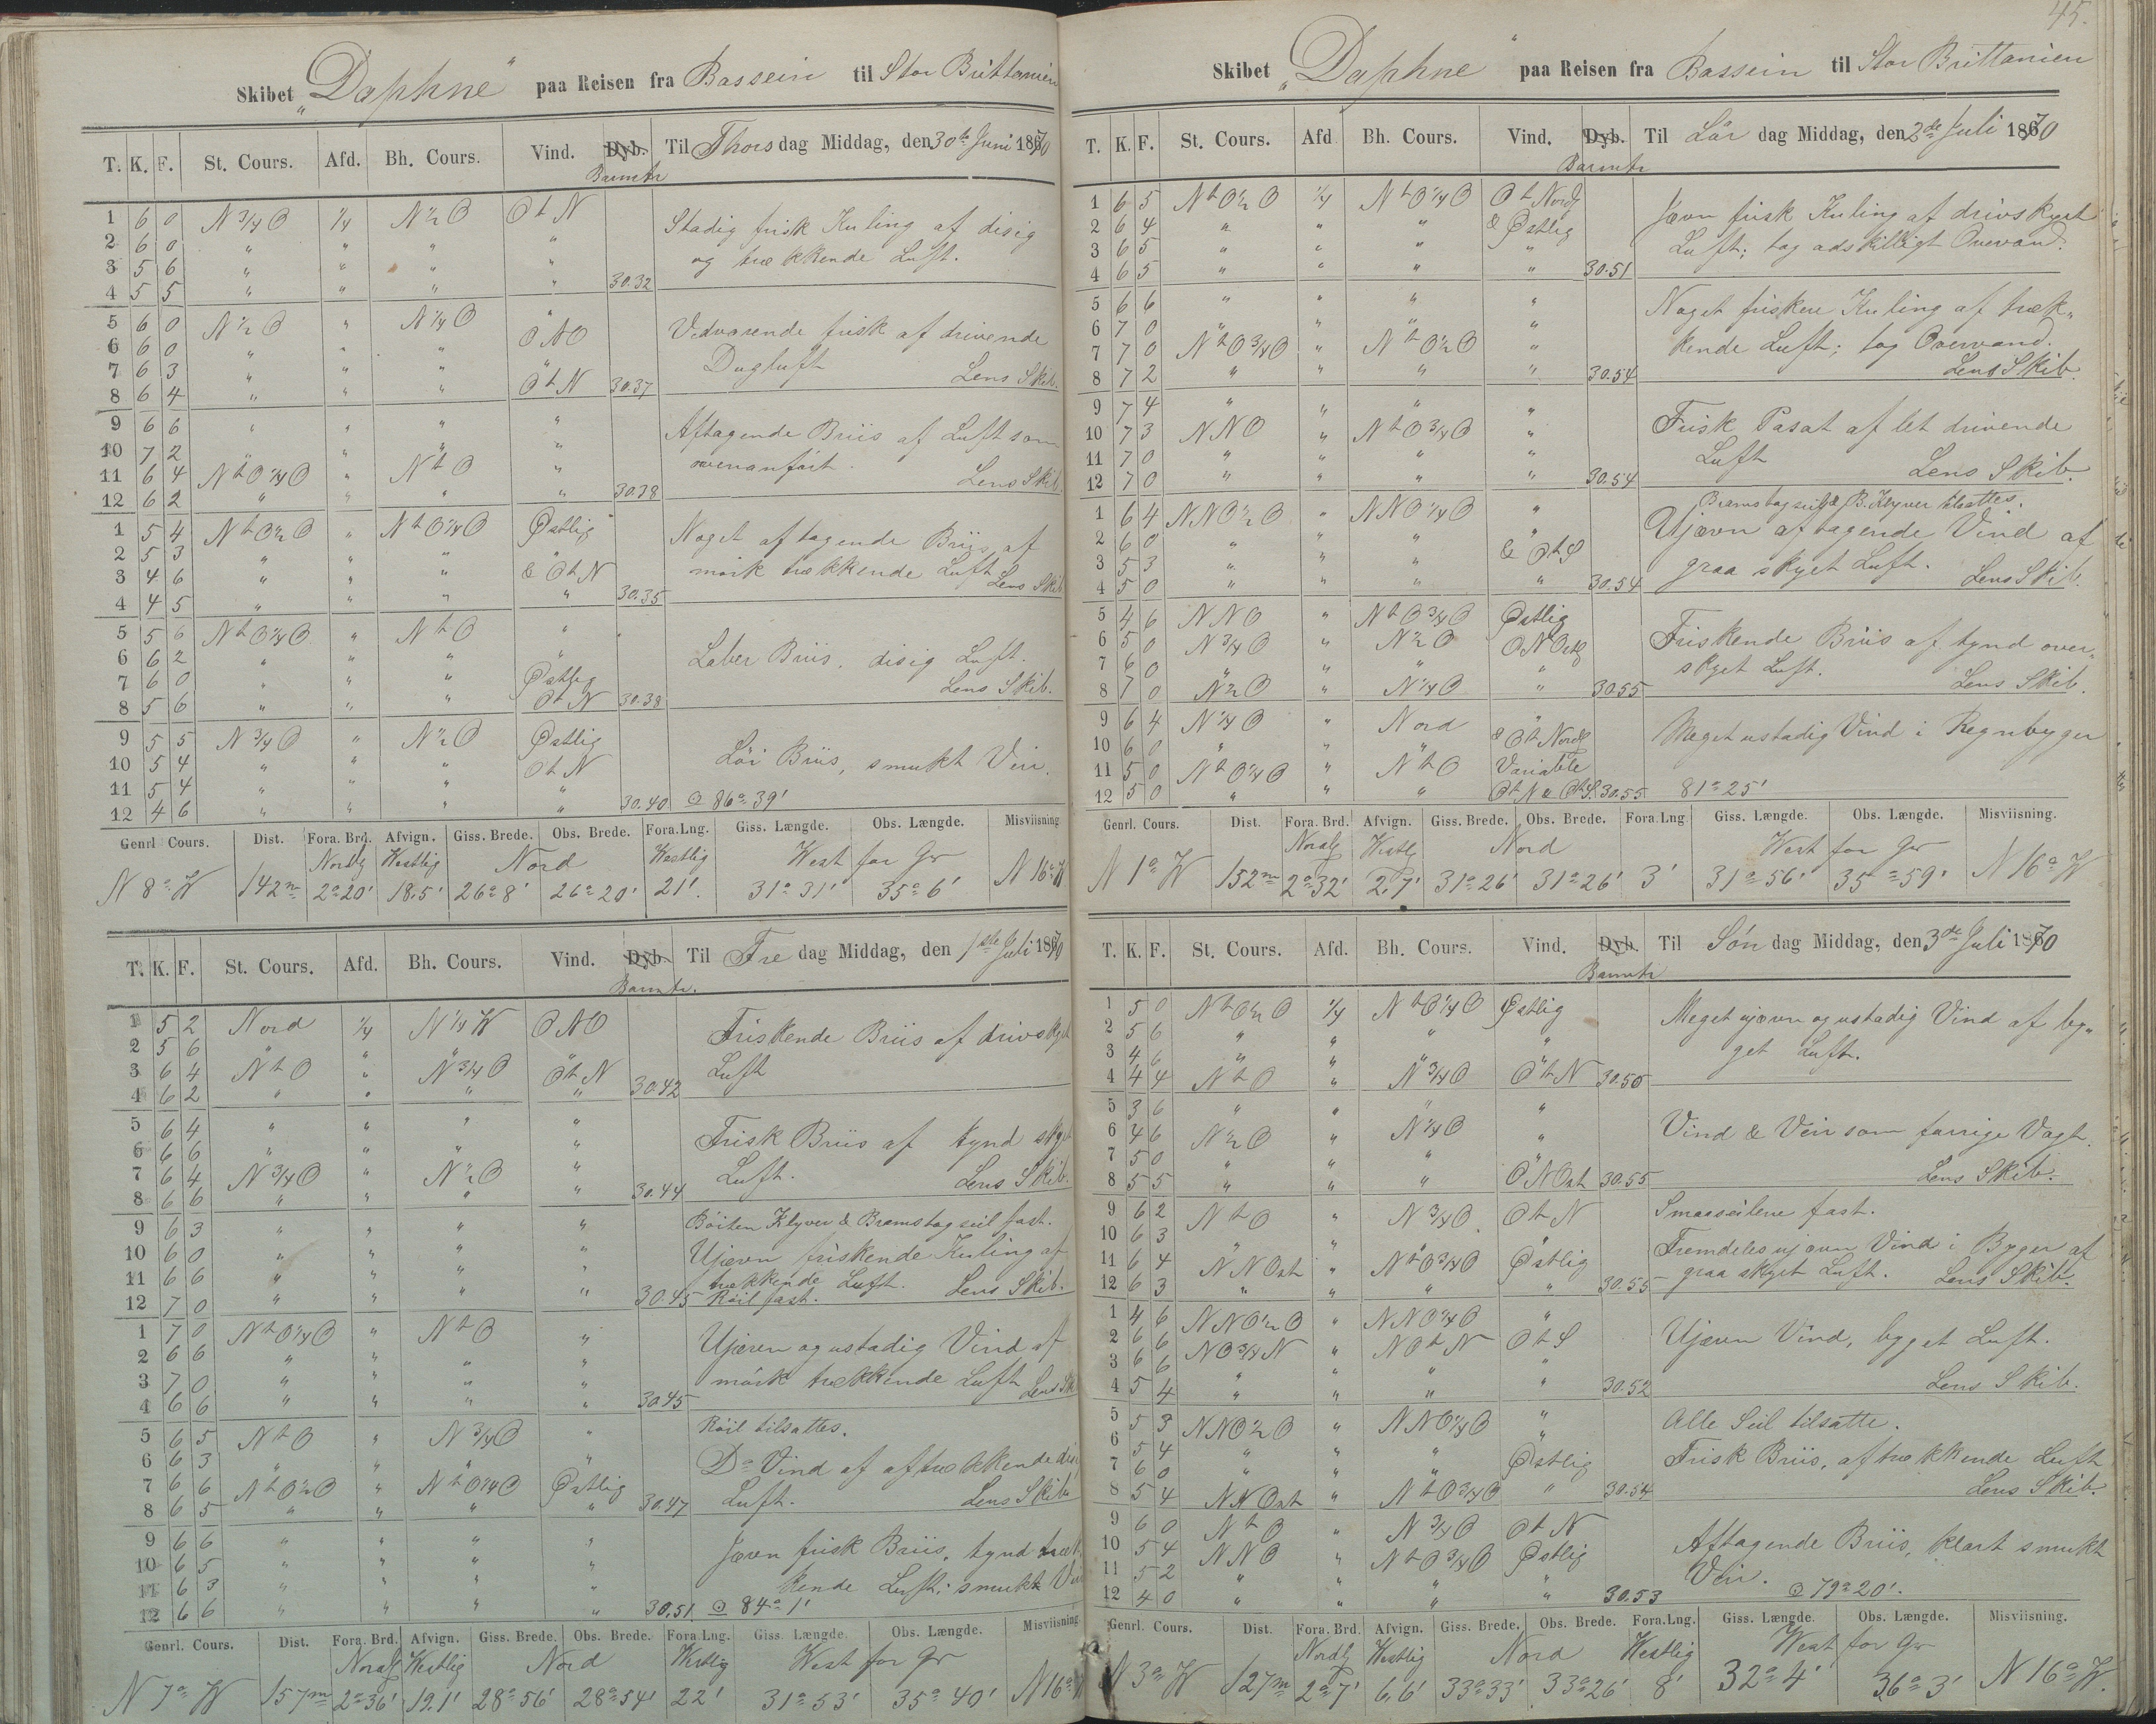 Skibet „Daphne“ paa Reisen fra Bassein til Stor Brittanien
T. K. F. St. Cours. Afd. Bh. Cours. Vind. Dyb. Barmtr Til Thorsdag Middag, den 30te Juni 1870
1 6 0 N 3/4 O 1/4 N 1/2 O O t N Stadig frisk Kuling af disig
2 6 0 " " " " og trækkende Luft.
3 5 6 " " " "
4 5 5 " " " " 30.32
5 6 0 N 1/2 O " N 1/4 O " Vedvarende frisk af drivende
6 6 0 " " " ONO Dugluft
7 6 3 " " " " Lens Skib.
8 6 4 " " " O t N 30.37
9 6 6 " " " " Aftagende Briis af Luft som
10 7 2 " " " " ovenanført.
11 6 4 N t O 1/4 O " N t O " Lens Skib
12 6 2 " " " " 30.38
1 5 4 N t O 1/2 O " N t O 1/4 O Østlig Noget aftagende Briis af
2 5 3 " " " " mørk trækkende Luft
3 4 6 " " " & O t N Lens Skib
4 4 5 " " " " 30.35
5 5 6 N t O 1/4 O " N t O "
6 6 2 " " " " Laber Briis, disig Luft.
7 6 0 " " " Østlig Lens Skib.
8 5 6 " " " O t N 30.38
9 5 5 N 3/4 O " N 1/2 O Østlig Løi Briis, smukt Veir.
10 5 4 " " " O t N
11 5 4 " " " "
12 4 6 " " " " 30.40 ⊙ 86° 39'
Genrl Cours. Dist. Fora. Brd. Afvign. Giss. Brede. Obs. Brede. Fora. Lng. Giss. Længde. Obs. Længde. Misviisning
Nordlg Westlig Nord Westlig West for Gw
N 8° W 142m 2° 20' 18.5' 26° 8' 26° 20' 21' 31° 31' 35° 6' N 16° W
T. K. F. St. Cours. Afd. Bh. Cours. Vind. Dyb. Barmtr. Til Fredag Middag, den 1ste Juli 1870
1 5 2 Nord 1/4 N 1/4 W ONO Friskende Briis af drivskyet
2 5 6 " " " " Luft
3 6 4 N t O " N 3/4 O O t N
4 6 2 " " " " 30.42
5 6 4 " " " " Frisk Briis af tynd skyet
6 6 6 " " " " Luft.
7 6 4 N 3/4 O " N 1/2 O " Lens Skib.
8 6 6 " " " " 30.44
9 6 3 " " " " Böiten Klyver & Bramstagseil fast.
10 6 0 " " " " Ujævn friskende Kuling af
11 6 6 " " " " trækkende Luft. Lens Skib.
12 7 0 " " " " 30.45 Röil fast.
1 7 0 N t O 1/4 O " N t O " Ujævn og ustadig Vind af
2 6 6 " " " " mörk trækkende Luft
3 7 0 " " " " Lens Ski
4 6 6 " " " " 30.45
5 6 5 N t O " N 3/4 O " Röil tilsattes.
6 6 3 " " " " Do Vind af aftrækkende dis
7 6 6 N t O 1/2 O " N t O 1/4 O Østlig Luft. Lens Skib
8 6 5 " " " " 30.47
9 6 6 " " " " Jævn frisk Briis, tynd træk
10 6 5 " " " " kende Luft; smukt Vei
11 6 3 " " " "
12 6 6 " " " " 30.51 ⊙ 84° 1'
Genrl. Cours. Dist. Fora. Brd. Afvign. Giss. Brede. Obs. Brede. Fora. Lng. Giss. Længde. Obs. Længde. Misviisning
Nordl Westlig Nord Westlig West for Gw
N 7° W 157m 2° 36' 19.1' 28° 56' 28° 54' 22' 31° 53' 35° 40' N 16° W
45.
Skibet „Daphne“ paa Reisen fra Bassein til Stor Brittanien
T. K. F. St. Cours. Afd Bh. Cours. Vind. Dyb. Barmtr Til Lørdag Middag, den 2de Juli 1870
1 6 5 N t O 1/2 O 1/4 N t O 1/4 O O t Nordl Jævn frisk Kuling af drivskyet
2 6 4 " " " & Østlig Luft; tog adskilligt Overvand.
3 6 5 " " " "
4 6 5 " " " " 30.51
5 6 6 " " " " Noget friskere Kuling af træk-
6 7 0 " " " " kende Luft; tog Overvand.
7 7 0 N t O 3/4 O " N t O 1/2 O " Lens Skib.
8 7 2 " " " " 30.54
9 7 4 " " " " Frisk Pasat af let drivende
10 7 3 NNO " N t O 3/4 O " Luft
11 7 0 " " " " Lens Skib.
12 7 0 " " " " 30.54
1 6 4 NNO 1/2 O " NNO 1/4 O " Bramstagseil & B. Klyver tilsattes.
2 6 0 " " " " Ujævn aftagende Vind af
3 5 3 " " " & O t S graa skyet Luft.
4 5 0 " " " " 30.54 Lens Skib.
5 4 6 NNO " N t O 3/4 O Østlig Friskende Briis af tynd over-
6 5 0 N 3/4 O " N 1/2 O ONOstl skyet Luft.
7 6 0 " " " "
8 7 0 N 1/2 O " N 1/4 O " 30.55 Lens Skib.
9 6 4 N 1/4 O " Nord " Meget ustadig Vind i Regnbyger
10 6 0 " " " & O t Nordl
11 5 0 N t O 1/4 O " N t O Variable
12 5 0 " " " O t N & O t S. 30.55 81° 25'
Genrl. Cours. Dist. Fora. Brd. Afvign. Giss. Brede. Obs. Brede. Fora. Lng. Giss. Længde. Obs. Længde. Misviisning.
Nordlg Westlg Nord West for Gw
N 1° W 152m 2° 32' 2.7' 31° 26' 31° 26' 3' 31° 56' 35° 59' N 16° W
T. K. F. St. Cours. Afd. Bh. Cours. Vind. Dyb. Barmtr Til Søndag Middag, den 3de Juli 1870
1 5 0 N t O 1/2 O 1/4 N t O 1/4 O Østlig Meget ujævn og ustadig Vind af byg-
2 5 6 " " " " get Luft.
3 4 6 " " " "
4 4 4 N t O " N 3/4 O O t N 30.50
5 3 6 " " " "
6 4 6 N 1/2 O " N 1/4 O " Vind & Veir som forrige Vagt.
7 5 0 " " " "
8 5 5 " " " ONOst 30.55 Lens Skib.
9 6 2 N t O " N 3/4 O O t N Smaaseilene fast.
10 6 3 " " " " Fremdeles ujævn Vind i Byger af
11 6 4 NNOst " N t O 3/4 O Østlig graa skyet Luft. Lens Skib.
12 6 3 " " " " 30.55
1 4 6 NNO 1/2 O " NNO 1/4 O "
2 6 6 NO 3/4 N " NO t N O t S Ujævn Vind, bygget Luft.
3 6 6 " " " "
4 5 4 " " " " 30.52 Lens Skib.
5 5 3 NNO 1/2 O " NNO 1/4 O " Alle Seil tilsatte.
6 5 4 " " " " Frisk Briis, af trækkende Luft
7 6 0 " " " Østlig
8 5 4 NNOst " N t O 3/4 O " 30.54 Lens Skib.
9 6 0 N t O " N 3/4 O O t N
10 5 4 NNO " N t O 3/4 O Østlig Aftagende Briis, klart smukt
11 5 2 " " " " Veir.
12 4 0 " " " " 30.53 ⊙ 79° 20'.
Genrl. Cours. Dist. Fora. Brd. Afvign. Giss. Brede. Obs. Brede. Fora. Lng. Giss. Længde. Obs. Længde. Misviisning.
Nordlg Westlig Nord Westlig West for Gw
N 3° W 127m 2° 7' 6,6' 33° 33' 33° 26' 8' 32° 4' 36° 3' N 16° W.